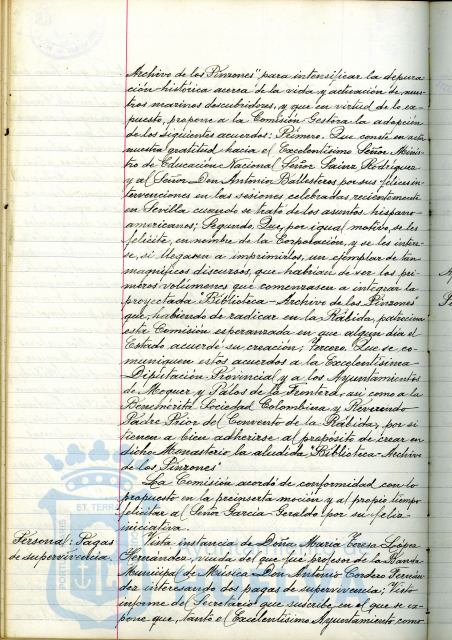 Archivo de los Pinzones" para intensificar la depura-
ción histórica acerca de la vida y actuación de nues-
tros marinos descubridores, y que en virtud de lo ex-
puesto, propone a la Comisión Gestora la adopción
de los siguientes acuerdos: Primero. Que conste en acta
nuestra gratitud hacia el Excelentísimo Señor Minis-
tro de Educación Nacional Señor Sainz Rodríguez
y al Señor Don Antonio Ballesteros por sus felices in-
tervenciones en las sesiones celebradas recientemente
en Sevilla cuando se trató de los asuntos hispano-
americanos; Segundo. Que, por igual motivo, se les
felicite, en nombre de la Corporación, y se les intere-
se, si llegasen a imprimirlos, un ejemplar de tan
magníficos discursos, que habrían de ser los pri-
meros volúmenes que comenzasen a integrar la
proyectada "Biblioteca-Archivo de los Pinzones"
que, habiendo de radicar en la Rábida, patrocina
esta Comisión esperanzada en que algun dia el
Estado acuerde su creación; Tercero. Que se co-
muniquen estos acuerdos a la Excelentísima
Diputación Provincial y a los Ayuntamientos
de Moguer y Palos de la Frontera, asi como a la
Benemérita Sociedad Colombina y Reverendo
Padre Prior del Convento de la Rábida, por si
tienen a bien adherirse al propósito de crear en
dicho Monasterio la aludida "Biblioteca-Archivo
de los Pinzones"
La Comisión acordó de conformidad con lo
propuesto en la preinserta moción y al propio tiempo
felicitar al Señor Garcia Geraldo por su feliz
iniciativa.
Personal: Pagas
de supervivencia.
Vista instancia de Doña María Teresa López
Hernández, viuda del que fué profesor de la Banda
Municipal de Música Don Antonio Cordero Fernán-
dez interesando dos pagas de supervivencia; Visto
informe del Secretario que suscribe, en el que se ex-
pone que, tanto el Excelentísimo Ayuntamiento como